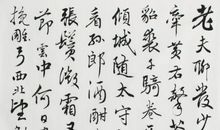 老夫聊發少
牽黃右擎蒼
貂裘千騎卷
傾城隨太守
看孫郎酒酣
張鬢微霜又
節雲中何日
挽雕弓西北望